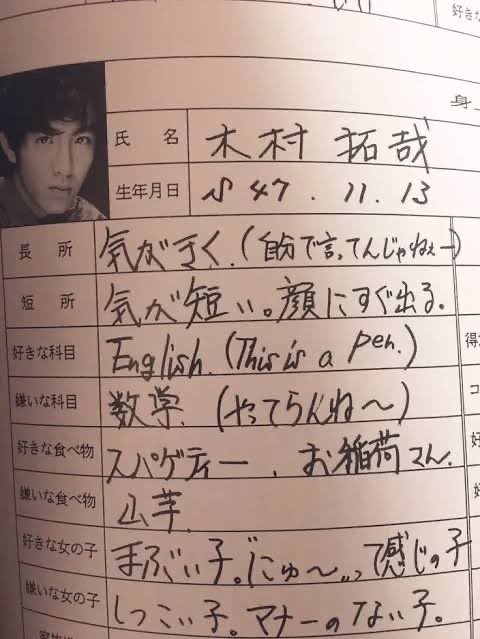 好きな
身
氏 名 木村 拓哉
生年月日 S47.11.13
長 所 気がきく。(自分で言ってんじゃねェー)
短 所 気が短い。顔にすぐ出る。
好きな科目 English. (This is a pen.)
嫌いな科目 数学. (やってらんね〜)
好きな食べ物 スパゲティー、お稲荷さん.
嫌いな食べ物 山芋.
好きな女の子 まぶい子。“にゅ〜„って感じの子
嫌いな女の子 しつこい子。マナーのない子。
得
コ
好
好